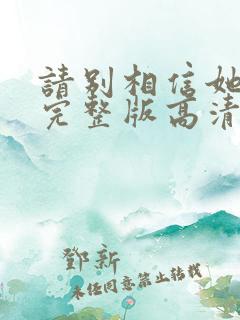 請别相信她
完整版高清
鄧新
未经同意禁止转载